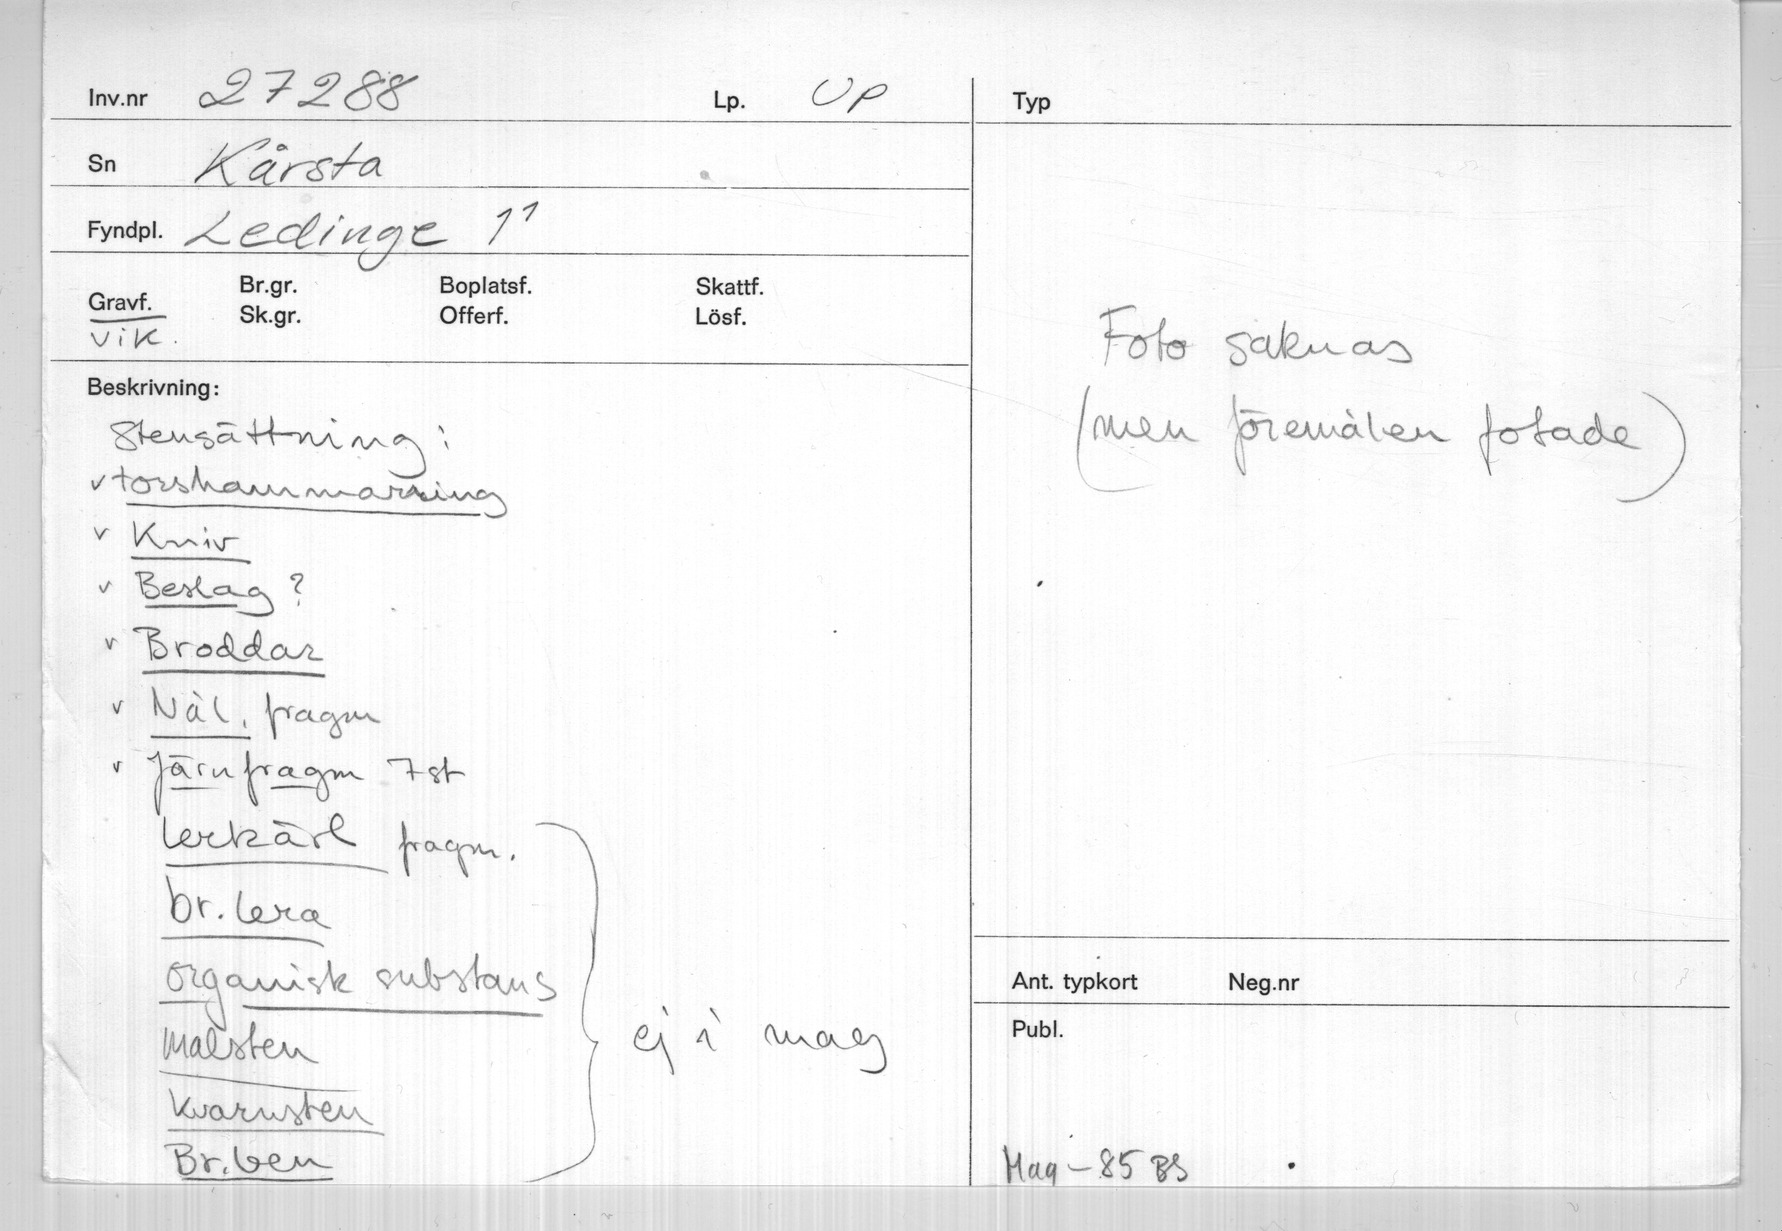 Inv.nr 27288 Lp. UP
Sn Kårsta
Fyndpl. Ledinge 1¹
Gravf. Br.gr. Boplatsf. Skattf.
Sk.gr. Offerf. Lösf.
vik.
Beskrivning:
Stensättning:
v torshammarring
v Kniv
v Beslag ?
v Broddar
v Nål, fragm
v Järnfragm 7 st
lerkärl fragm.
br. lera
organisk substans
malsten
kvarnsten
Br. ben
ej i mag
Typ
Foto saknas
(men föremålen fotade)
Ant. typkort Neg.nr
Publ.
Mag - 85 BS